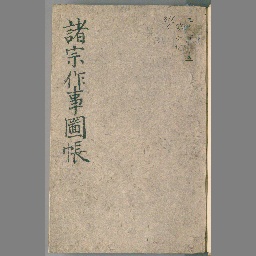 諸宗作事圖帳